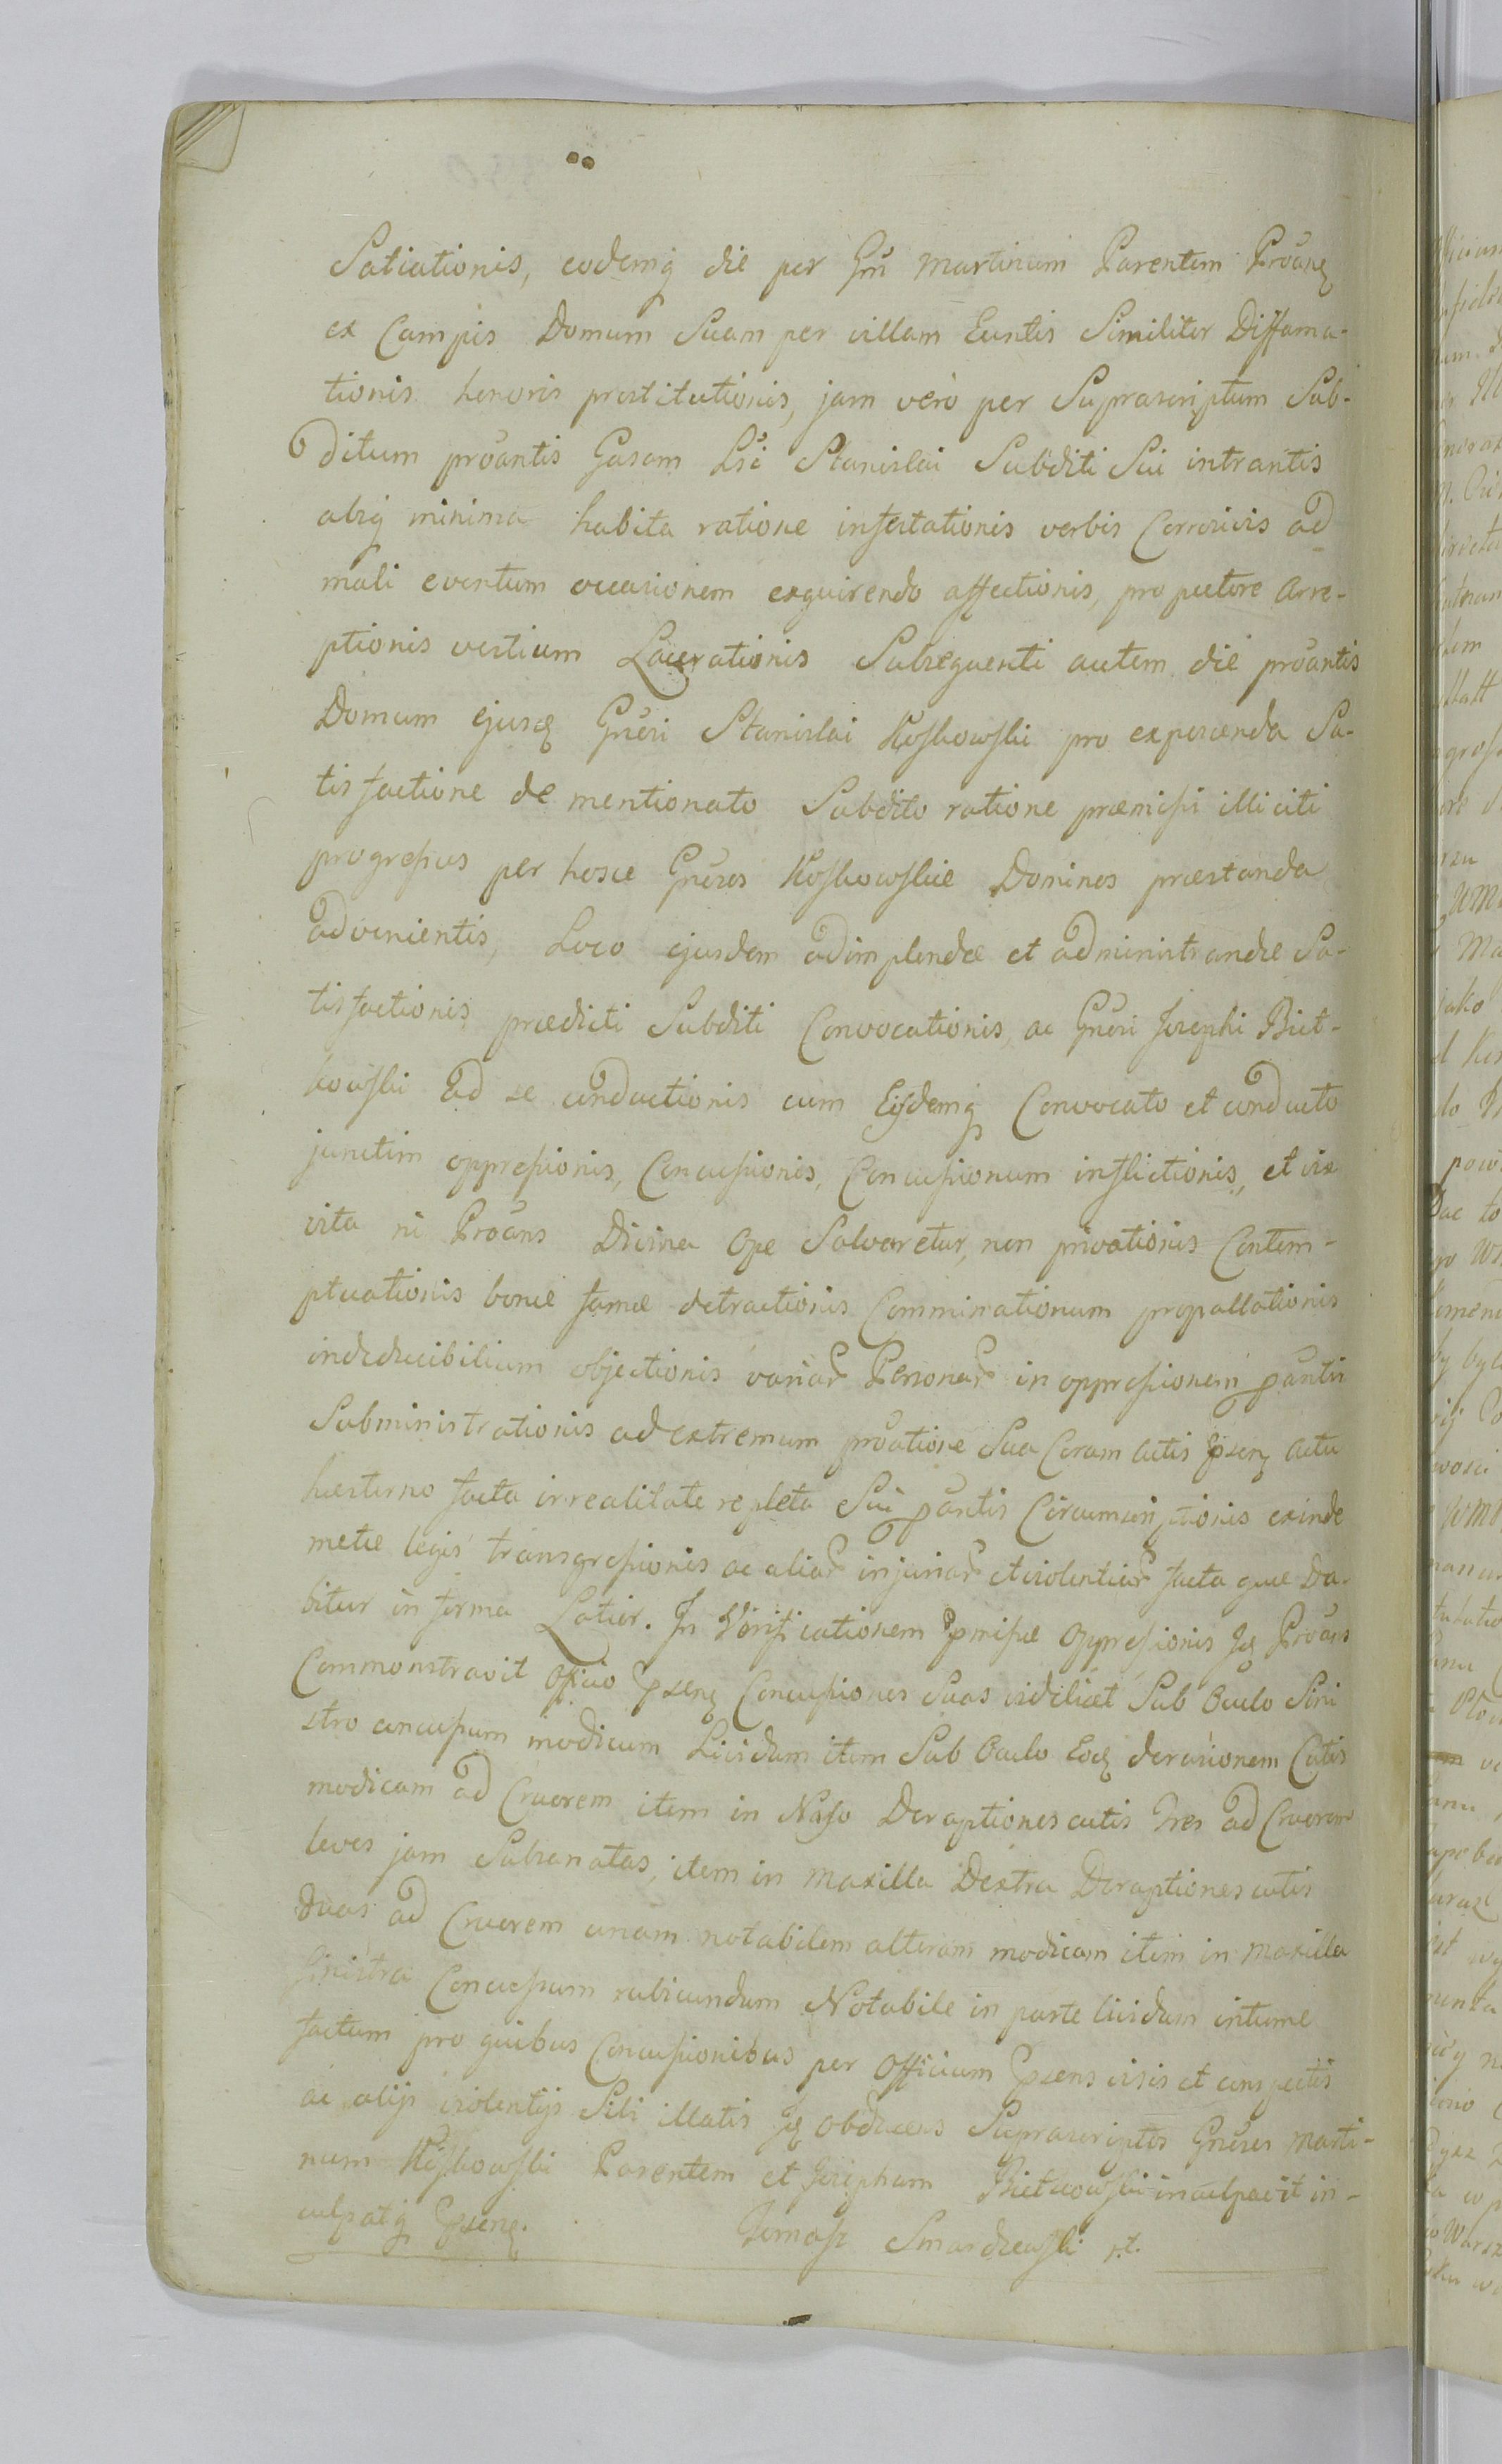 Satiationis, eodemq die per Gnu Martinum Parentem Proanq
ex Campis Domum Suam per villam Euntis Similiter Diffama-
tionis honoris prostitutionis, jam vero per Suprascriptum Sub-
ditum proantis Gasam Lsi Stanislai Subditi Sui intrantis
absq minima habita ratione infestationis verbis Corrosivis ad
mali eventum occasionem exquirendo affectionis, pro pectore Arre-
ptionis vestium Lacerationis Subsequenti autem die proantis
Domum ejusq Gnesi Stanislai Koskowski pro exposcenda Sa-
tisfactione de mentionato Subdito ratione præmissi illiciti
progressus per hosce Gneros Koskowskie Dominos præstanda
advenientis, Loco ejusdem adimplendæ et administrandæ Sa-
tisfactionis prædicti Subditi Convocationis, ac Gnesi Josephi Biet-
kowski ad se conductionis cum Eisdemq Convocato et conducto
junctim oppressionis, Concussionis, Concussionum inflictionis, et vix
vita ni Proans Divina Ope Salvaretur, non privationis Contem-
ptuationis bonæ famæ detractionis Comminationum propallationis
indeducibilium objectionis variar Personar in oppressionem pantis
Subministrationis ad extremum proatione Sua Coram Actis Psenq Actu
hæsterno facta irrealitate repleta Sui pantis Circumscriptionis exinde
metæ legis transgressionis ac aliar injuriar et violentiar facta quæ Da-
bitur in forma Latior. In Verificationem Pmissæ Oppressionis Iq Proans
Commonstravit Officio Psenq Concussiones Suas videlicet Sub Oculo Sini
stro concussum modicum Lividum item Sub Oculo Eoq derasionem Cutis
modicam ad Cruorem item in Naso Deraptiones cutis tres ad Cruorem
leves jam Subsanatas, item in Maxilla Dextra Deraptiones cutis
Duas ad Cruorem unam notabilem alteram modicam item in Maxilla
Sinistra Concussum rubicundum Notabile in parte lividum intume
factum pro quibus Concussionibus per Officium Psens visis et conspectis
ac alijs violentijs Sibi illatis Iq Obducens Suprascriptos Gneros Marti-
num Koskowski Parentem et Josephum Bietkowski inculpavit in-
culpatq Psenq. Tomasz Smardzewski